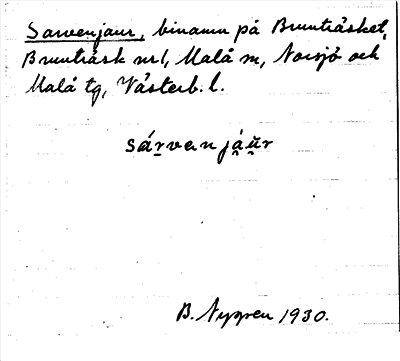 Sarvenjaur, binamn på Bruntråsket,
Bruntråsk nr 1, Malå sn, Norsjö och
Malå tg, Västerb. l.
sárvanjáŭr
B. Nygren 1930.